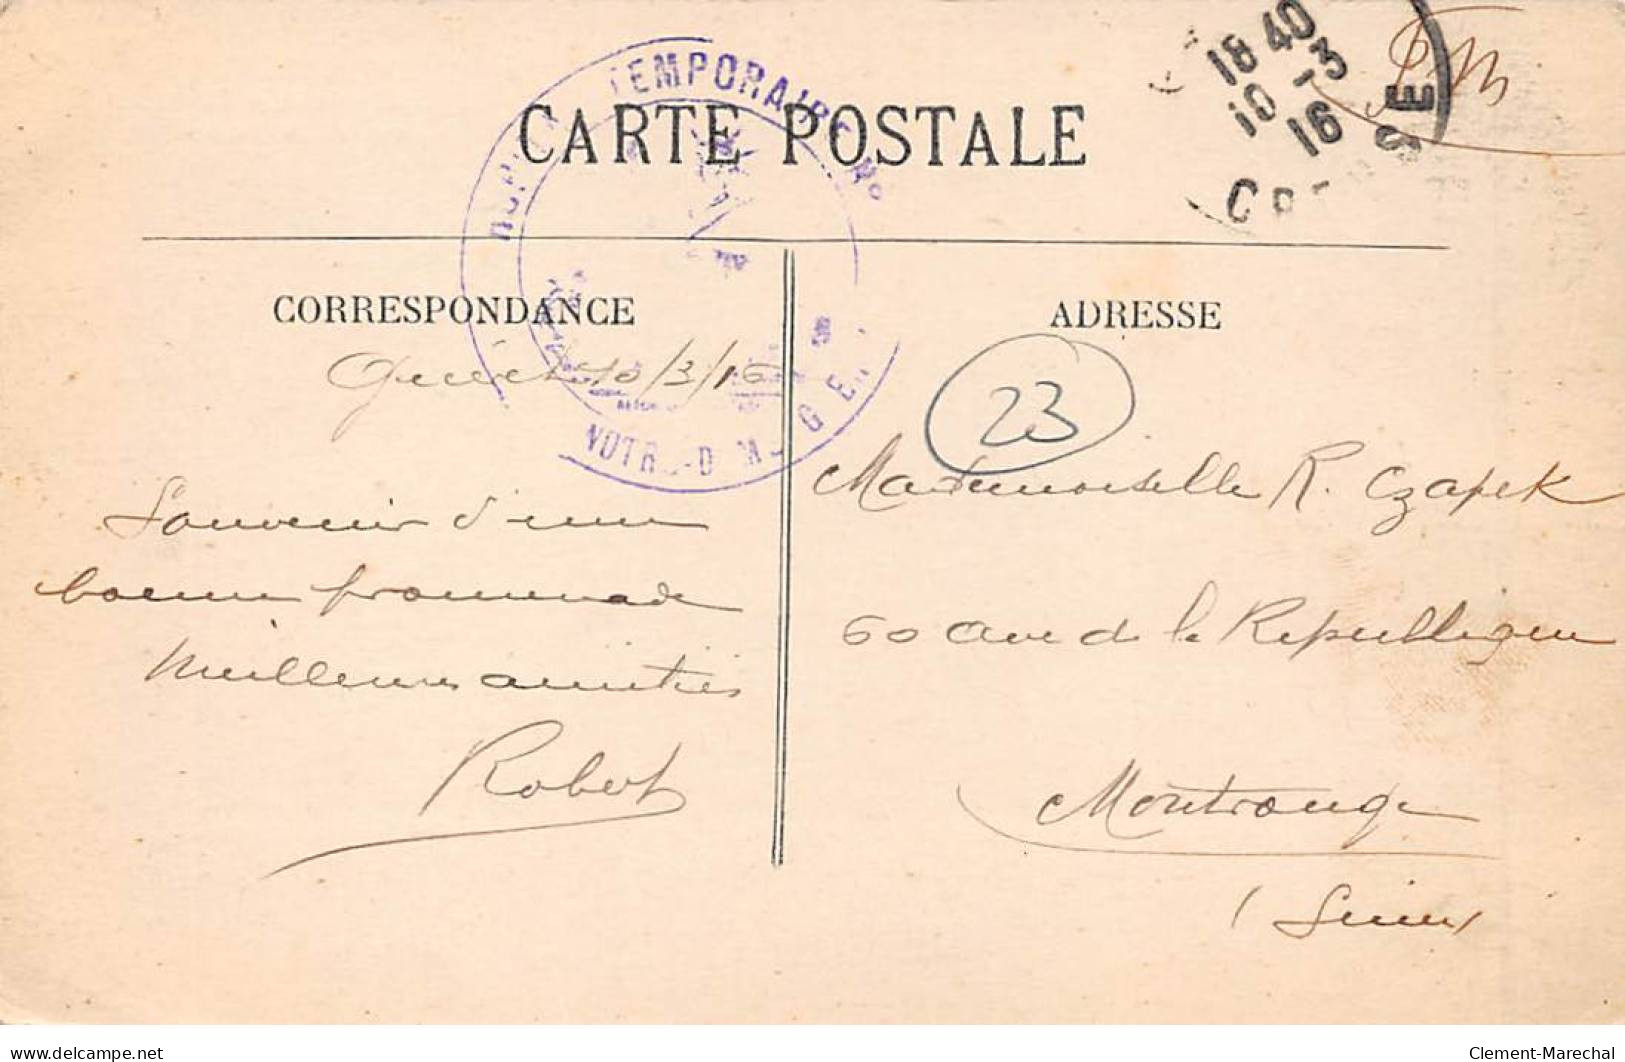 CARTE POSTALE
TEMPORAIRE No
18 40
10 -3
16
SE
FM
CORRESPONDANCE
ADRESSE
Guéret 10/3/16
23
Souvenir d'une
bonne promenade
Meilleures amitiés
Robert
Mademoiselle R. Czapek
60 ave de la République
Montrouge
(Seine)
delcampe.net
Clement-Marechal